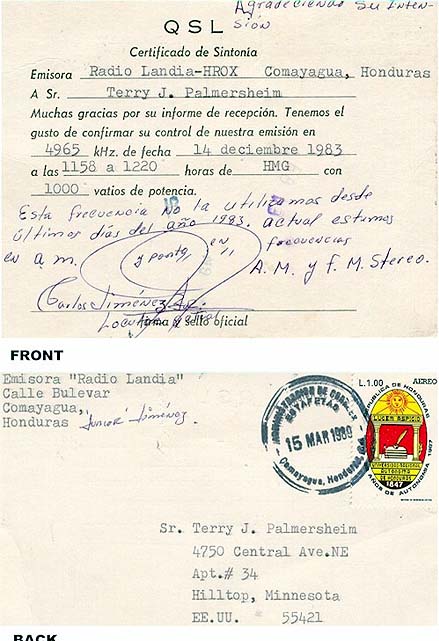 Agradeciendo Su Inten-
sión
QSL
Certificado de Sintonía
Emisora Radio Landia-HROX Comayagua, Honduras
A Sr. Terry J. Palmersheim
Muchas gracias por su informe de recepción. Tenemos el
gusto de confirmar su control de nuestra emisión en
4965 kHz. de fecha 14 deciembre 1983
a las 1158 a 1220 horas de HMG con
1000 vatios de potencia.
Esta frecuencia No la utilizamos desde
últimos días del año 1983. actual estamos
en a.m. y en frecuencias
A.M. y f. M. Stereo.
Carlos Jiménez
Locutor
firma y sello oficial
FRONT
Emisora "Radio Landia"
Calle Bulevar
Comayagua,
Honduras Junior Jiménez.
ADMINISTRACION DE CORREOS
ESTAFETAS
15 MAR 1989
Comayagua, Honduras, C.A.
L.1.00 AEREO
REPUBLICA DE HONDURAS
LUCEM ASPICIO
UNIVERSIDAD NACIONAL
AUTONOMA
DE HONDURAS
1847
AÑOS DE AUTONOMIA 1987
Sr. Terry J. Palmersheim
4750 Central Ave.NE
Apt.# 34
Hilltop, Minnesota
EE.UU. 55421
BACK